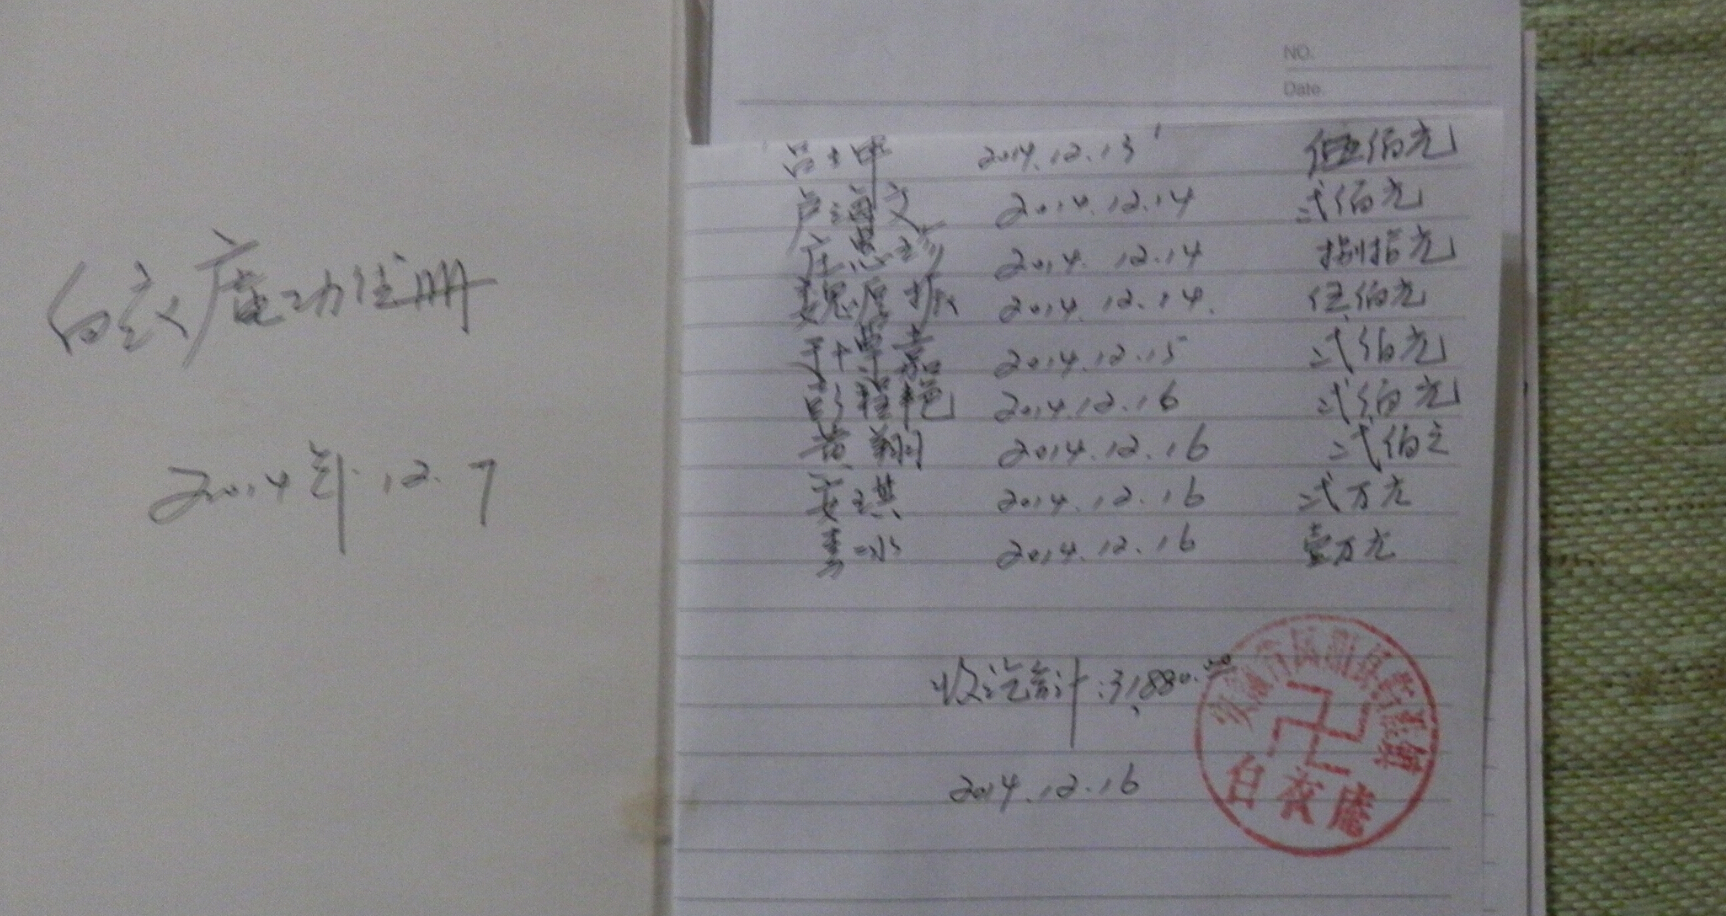 白衣庵功德册
2014年.12.7
NO.
Date.
吕士甲 2014.12.13 伍佰元
卢海文 2014.12.14 弍佰元
庄恩 2014.12.14 捌拾元
魏厚振 2014.12.14. 伍佰元
嘉 2014.12.15 弍佰元
彭程艳 2014.12.16 弍佰元
黄翔 2014.12.16 弍佰元
安琪 2014.12.16 弍万元
2014.12.16 壹万元
收汇合计:31,880.00
2014.12.16
安徽省凤阳县临淮镇
白衣庵